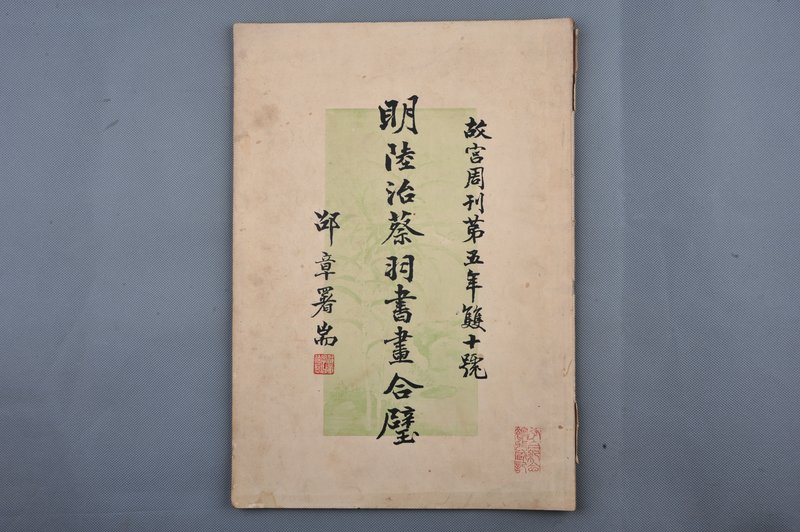 故宮周刊第五年雙十號
明陸治蔡羽書畫合璧
邵章署耑